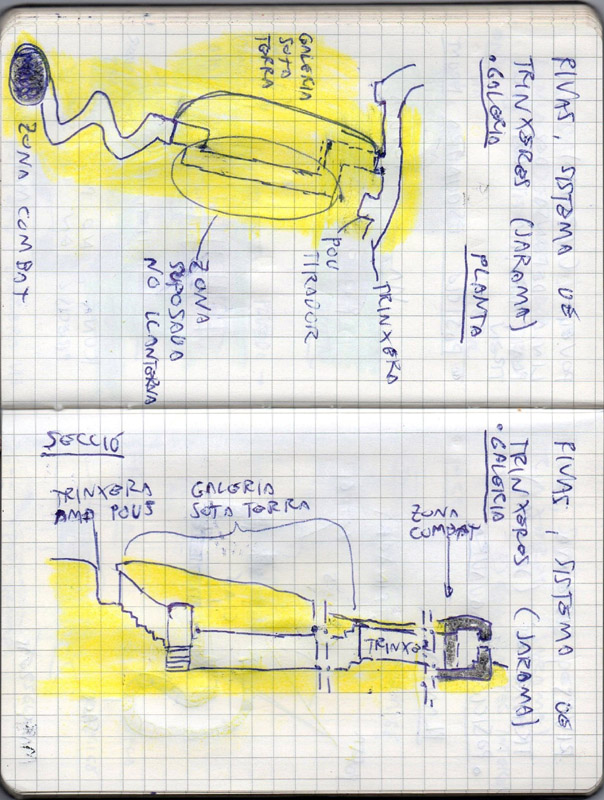 RIVAS, SISTEMA DE
TRINXERES (JARAMA)
• GALERIA
PLANTA
GALERIA
SOTA
TERRA
TRINXERA
POU
TIRADOR
ZONA
SUPOSADA
NO
ZONA COMBAT
RIVAS, SISTEMA DE
TRINXERES (JARAMA)
• GALERIA
SECCIÓ
TRINXERA
AMB POUS
GALERIA
SOTA TERRA
ZONA
COMBAT
TRINXER